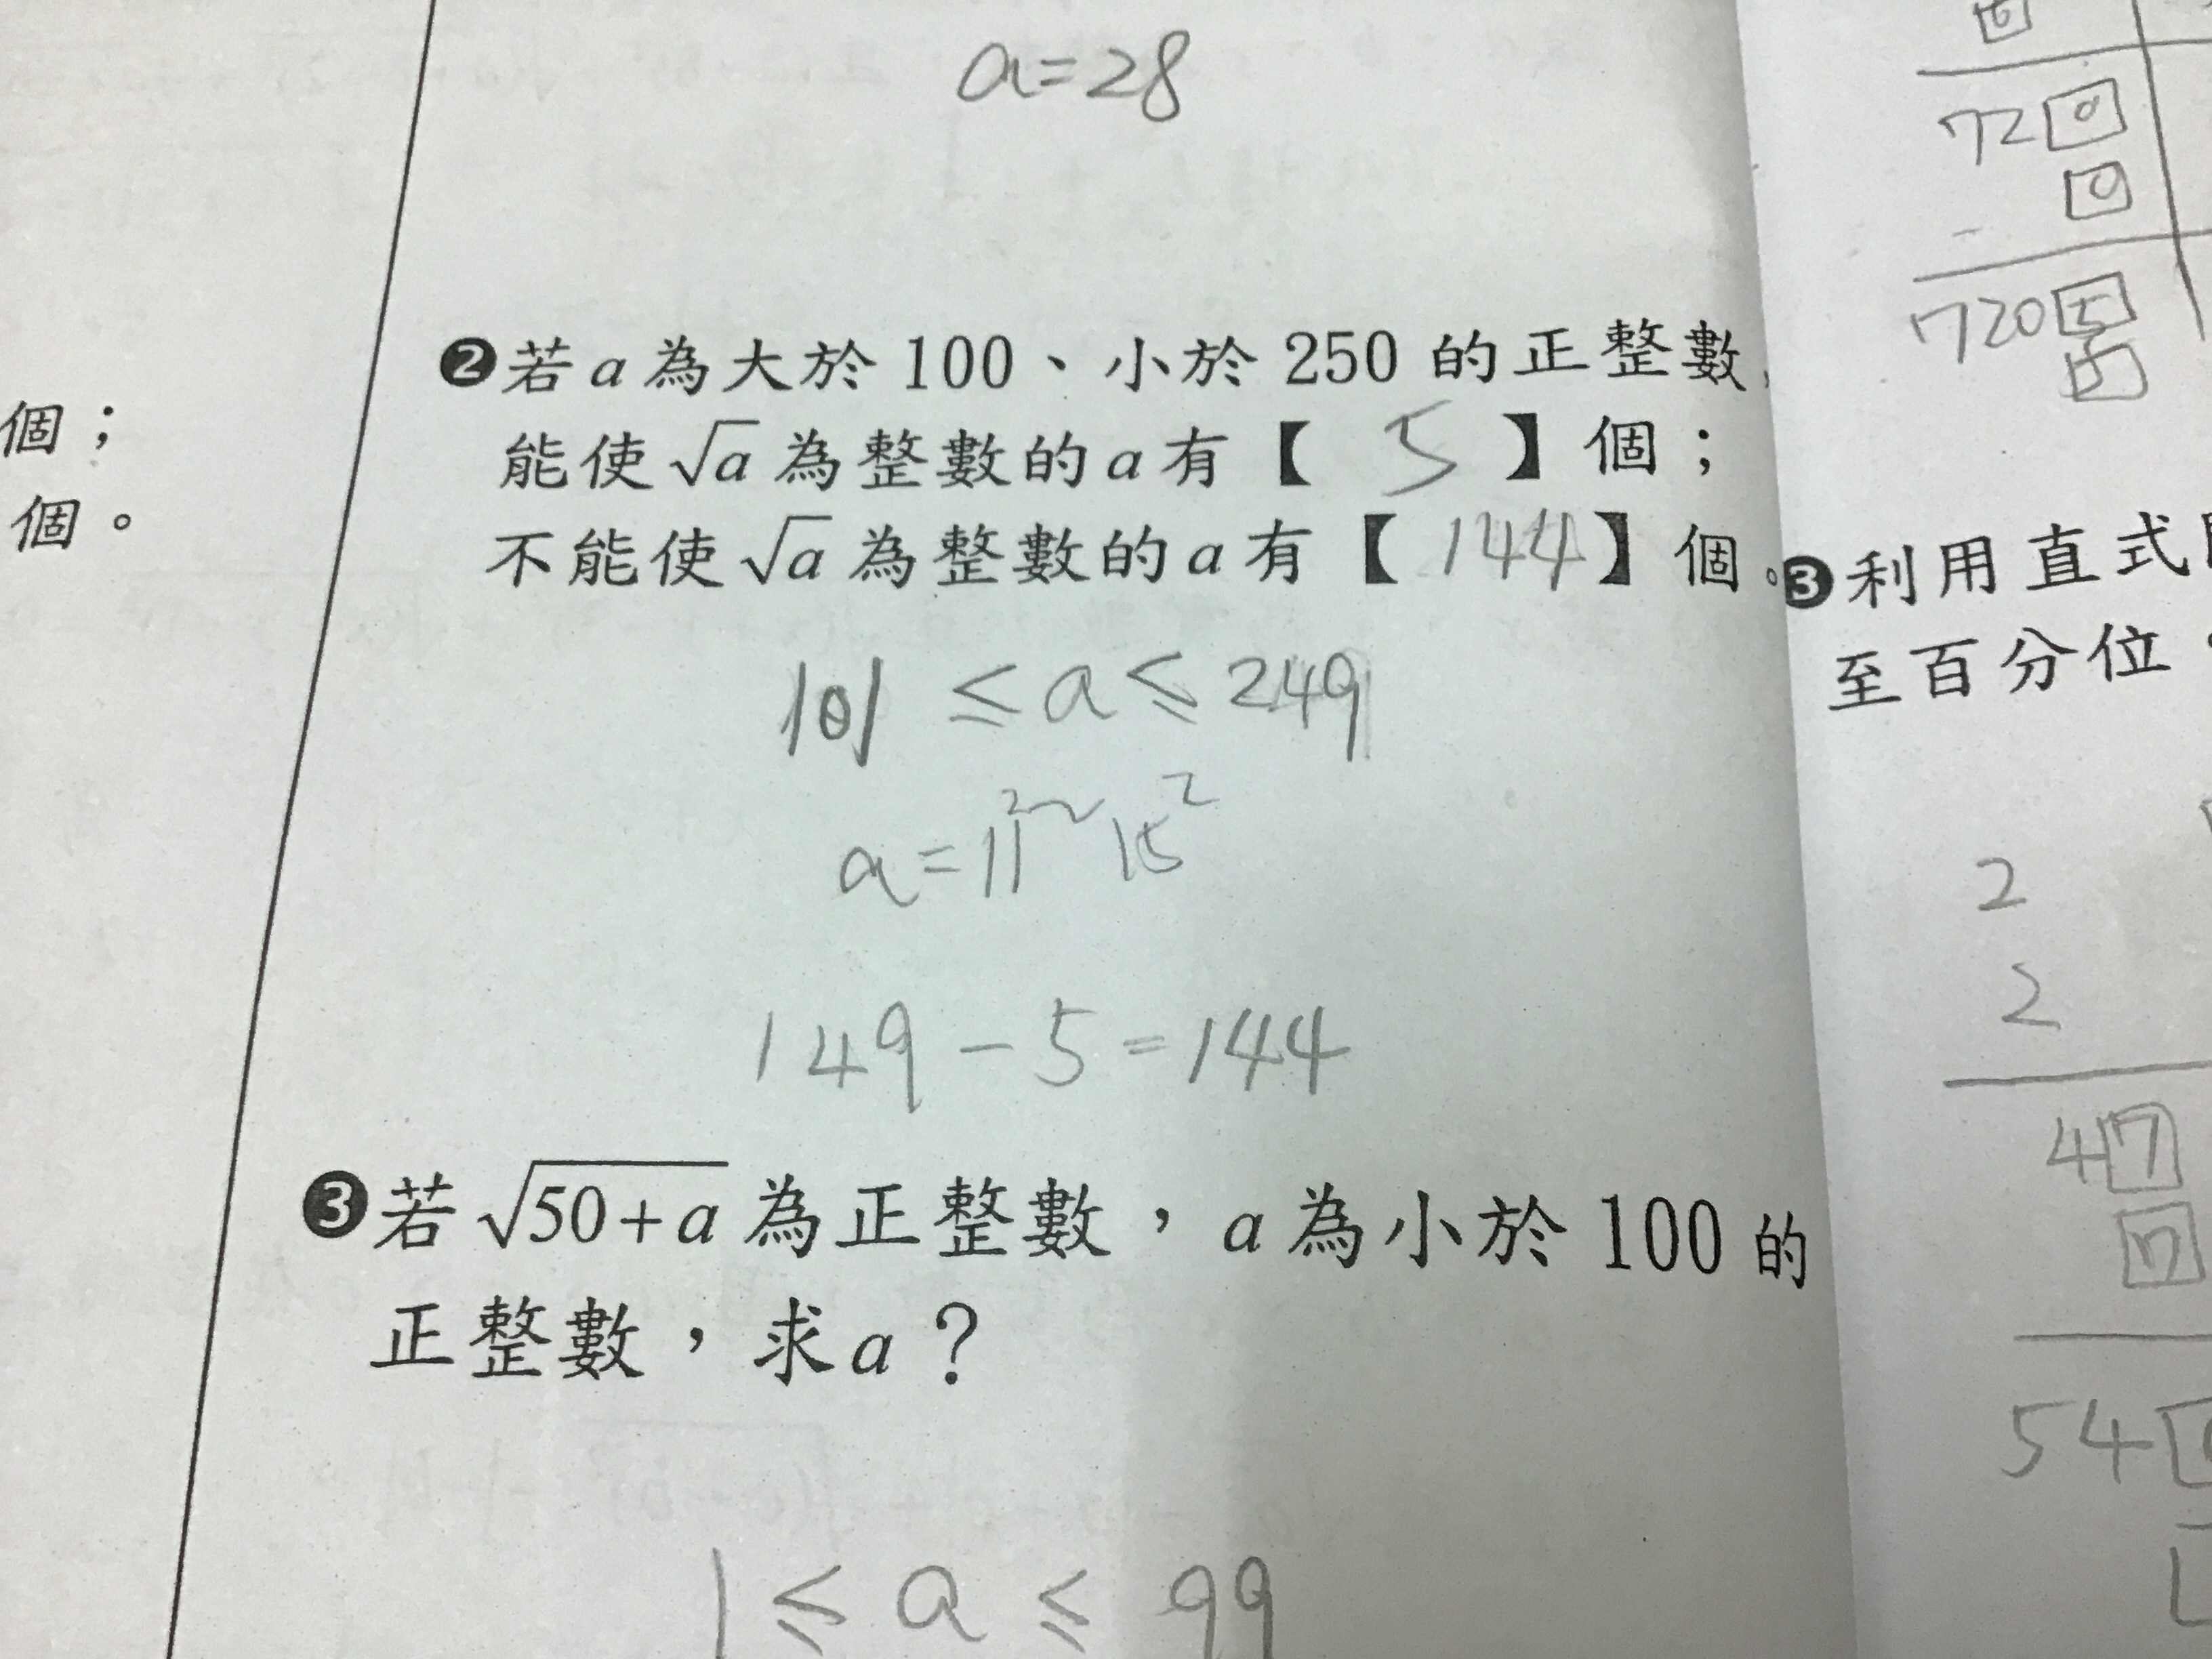 a=28
個；
個。
❷若a為大於100、小於250的正整數，
能使√a為整數的a有【 5 】個；
不能使√a為整數的a有【 144 】個。
101 ≤ a ≤ 249
a = 11² ~ 15²
149 - 5 = 144
❸若√50+a為正整數，a為小於100的
正整數，求a？
1 ≤ a ≤ 99
6
720
0
7205
5
❸利用直式
至百分位。
2
2
47
7
54